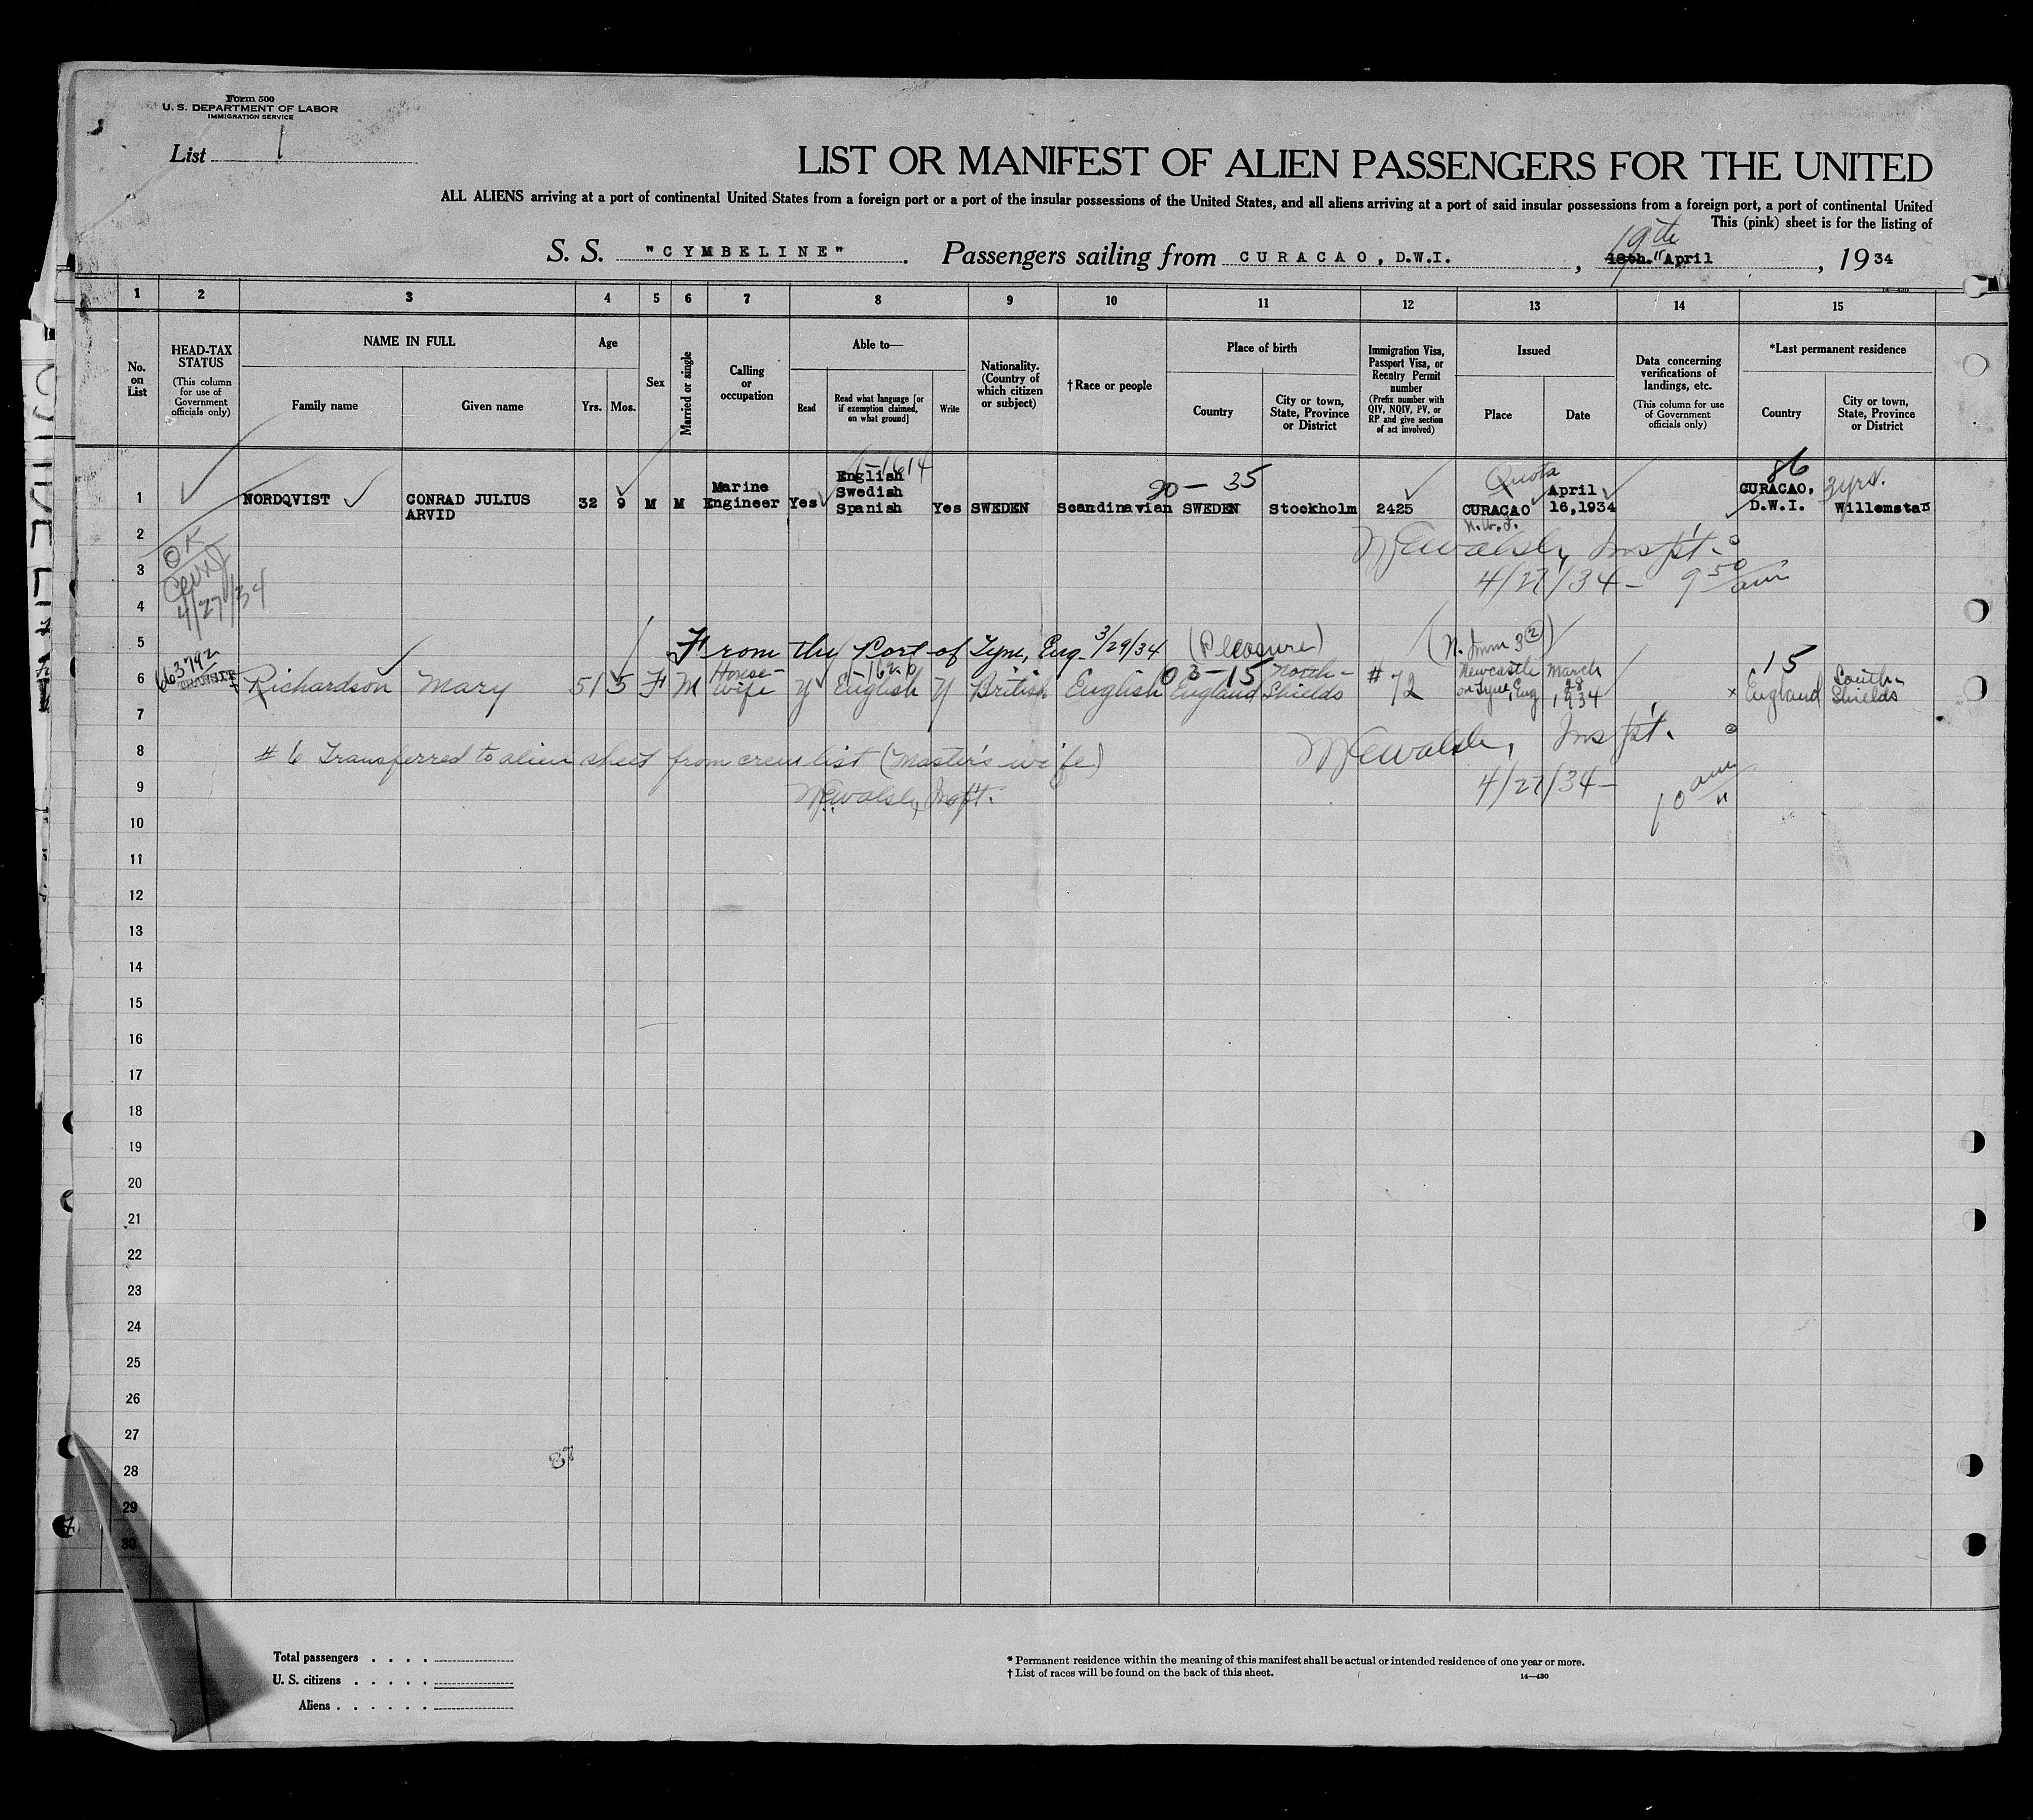 Form 500
U. S. DEPARTMENT OF LABOR
IMMIGRATION SERVICE
List 1
LIST OR MANIFEST OF ALIEN PASSENGERS FOR THE UNITED
ALL ALIENS arriving at a port of continental United States from a foreign port or a port of the insular possessions of the United States, and all aliens arriving at a port of said insular possessions from a foreign port, a port of continental United
This (pink) sheet is for the listing of
19th
S. S. "CYMBELINE" . Passengers sailing from CURACAO, D.W.I. , 18th. April , 19 34
1 2 3 4 5 6 7 8 9 10 11 12 13 14 15
No. on List
HEAD-TAX STATUS
(This column for use of Government officials only)
NAME IN FULL
Family name
Given name
Age
Yrs. Mos.
Sex
Married or single
Calling or occupation
Able to—
Read
Read what language [or if exemption claimed, on what ground]
Write
Nationality. (Country of which citizen or subject)
†Race or people
Place of birth
Country
City or town, State, Province or District
Immigration Visa, Passport Visa, or Reentry Permit number
(Prefix number with QIV, NQIV, PV, or RP and give section of act involved)
Issued
Place
Date
Data concerning verifications of landings, etc.
(This column for use of Government officials only)
*Last permanent residence
Country
City or town, State, Province or District
20 — 35 Quota 86
1 NORDQVIST CONRAD JULIUS ARVID 32 9 M M Marine Engineer Yes English Swedish Spanish Yes SWEDEN Scandinavian SWEDEN Stockholm 2425 CURACAO April 16,1934 CURACAO, D.W.I. 3yrs. Willemstad
2
OK
3
4/27/34 — 9 50 am
4
4/27/34
5 From the Port of Tyne, Eng. 3/29/34 (Pleasure) (N. Imm 3(2))
663792
TRANSIT
03—15 15
6 Richardson Mary 51 5 F M House-wife Y English Y British English England North-Shields #72 Newcastle on Tyne, Eng March 28 1934 x England South-Shields
7
8 #6 Transferred to alien sheet from crew list (Master's wife)
Walsh, Inspt.
9
4/27/34 — 10 am
10
11
12
13
14
15
16
17
18
19
20
21
22
23
24
25
26
27
87
28
29
30
Total passengers . . . .
U. S. citizens . . . . .
Aliens . . . . . .
* Permanent residence within the meaning of this manifest shall be actual or intended residence of one year or more.
† List of races will be found on the back of this sheet.
14—430